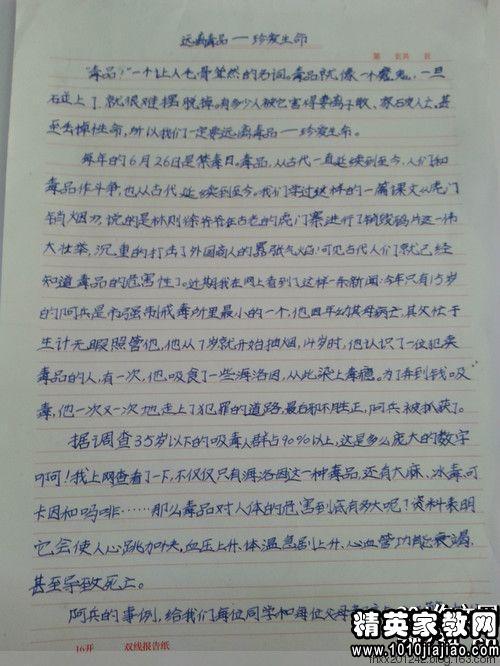 远离毒品—珍爱生命
第 页共 页
"毒品!"一个让人毛骨耸然的名词。毒品就像一个魔鬼,一旦
石进上了就很难摆脱掉。有多少人被它害得妻离子散、家石皮人亡,甚
至丢掉性命,所以我们一定要远离毒品—珍爱生命。
每年的6月26日是禁毒日,毒品,从古代一直延续到至今,人们和
毒品作斗争,也从古代延续到至今。我们学过这样的一篇课文《虎门
销烟》,说的是林则徐爷爷在古老的虎门寨进行了销毁鸦片这一伟
大壮举,沉重的打击了外国商人的嚣张气火焰!可见古代人们就已经
知道毒品的危害性了。近期我在网上看到了这样一条新闻:今年只有15岁
的阿兵是市强制戒毒所里最小的一个,他四年幼其母病亡,其父忙于
生计无暇照管他,他从7岁就开始抽烟,14岁时,他认识了一位犯卖
毒品的人,有一次,他吸食了一些海洛因,从此染上毒瘾。为了弄到钱吸
毒,他一次又一次地走上了犯罪的道路,最后邪不胜正,阿兵被抓获了。
据调查35岁以下的吸毒人群占90%以上,这是多么庞大的数字
啊!我上网查看了一下,不仅仅只有海洛因这一种毒品,还有大麻、冰毒、可
卡因和吗啡……那么毒品对人体的危害到底有多大呢?资料表明
它会使人心跳加快,血压上升、体温急剧上升、心血管功能衰竭,
甚至导致死亡。
阿兵的事例,给我们每位同学和每位父母
16开 双线报告纸
精英家教网
www.1010jiajiao.com